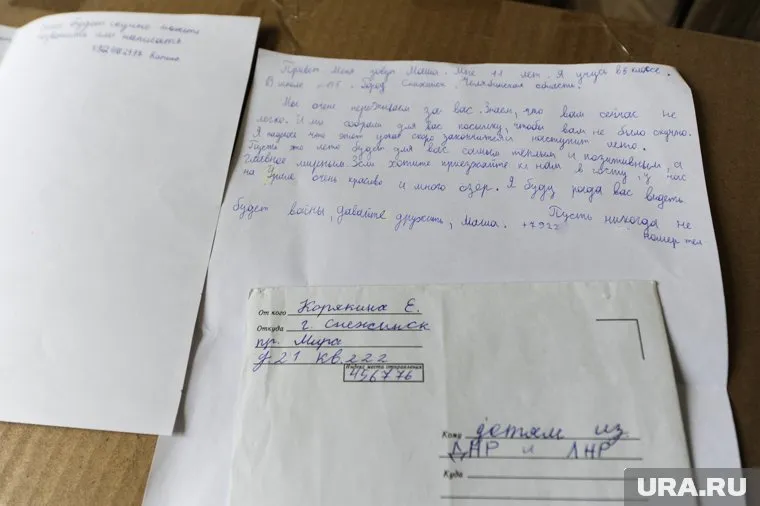 будет скучно можете
позвонить или написать
Привет Меня зовут Маша. Мне 11 лет. Я учусь в 5 классе.
В школе г. Город Снежинск. Челябинская область.
Мы очень переживаем за вас. Знаем, что вам сейчас не
легко. И мы собрали для вас посылку, чтобы вам не было скучно.
Я надеюсь что этот ужас скоро закончится и наступит лето.
Пусть это лето будет для вас самым теплым и позитивным, а
главное мирным. Если хотите приезжайте к нам в гости, у нас
на Урале очень красиво и много озер. Я буду рада вас видеть.
Пусть никогда не
будет войны, давайте дружить, Маша. +7922
номер тел
От кого Корякина Е.
Откуда г. Снежинск
пр. Мира
д.21 кв.222
Индекс места отправления
456776
Кому детям из
ДНР и ЛНР
Куда
URA.RU